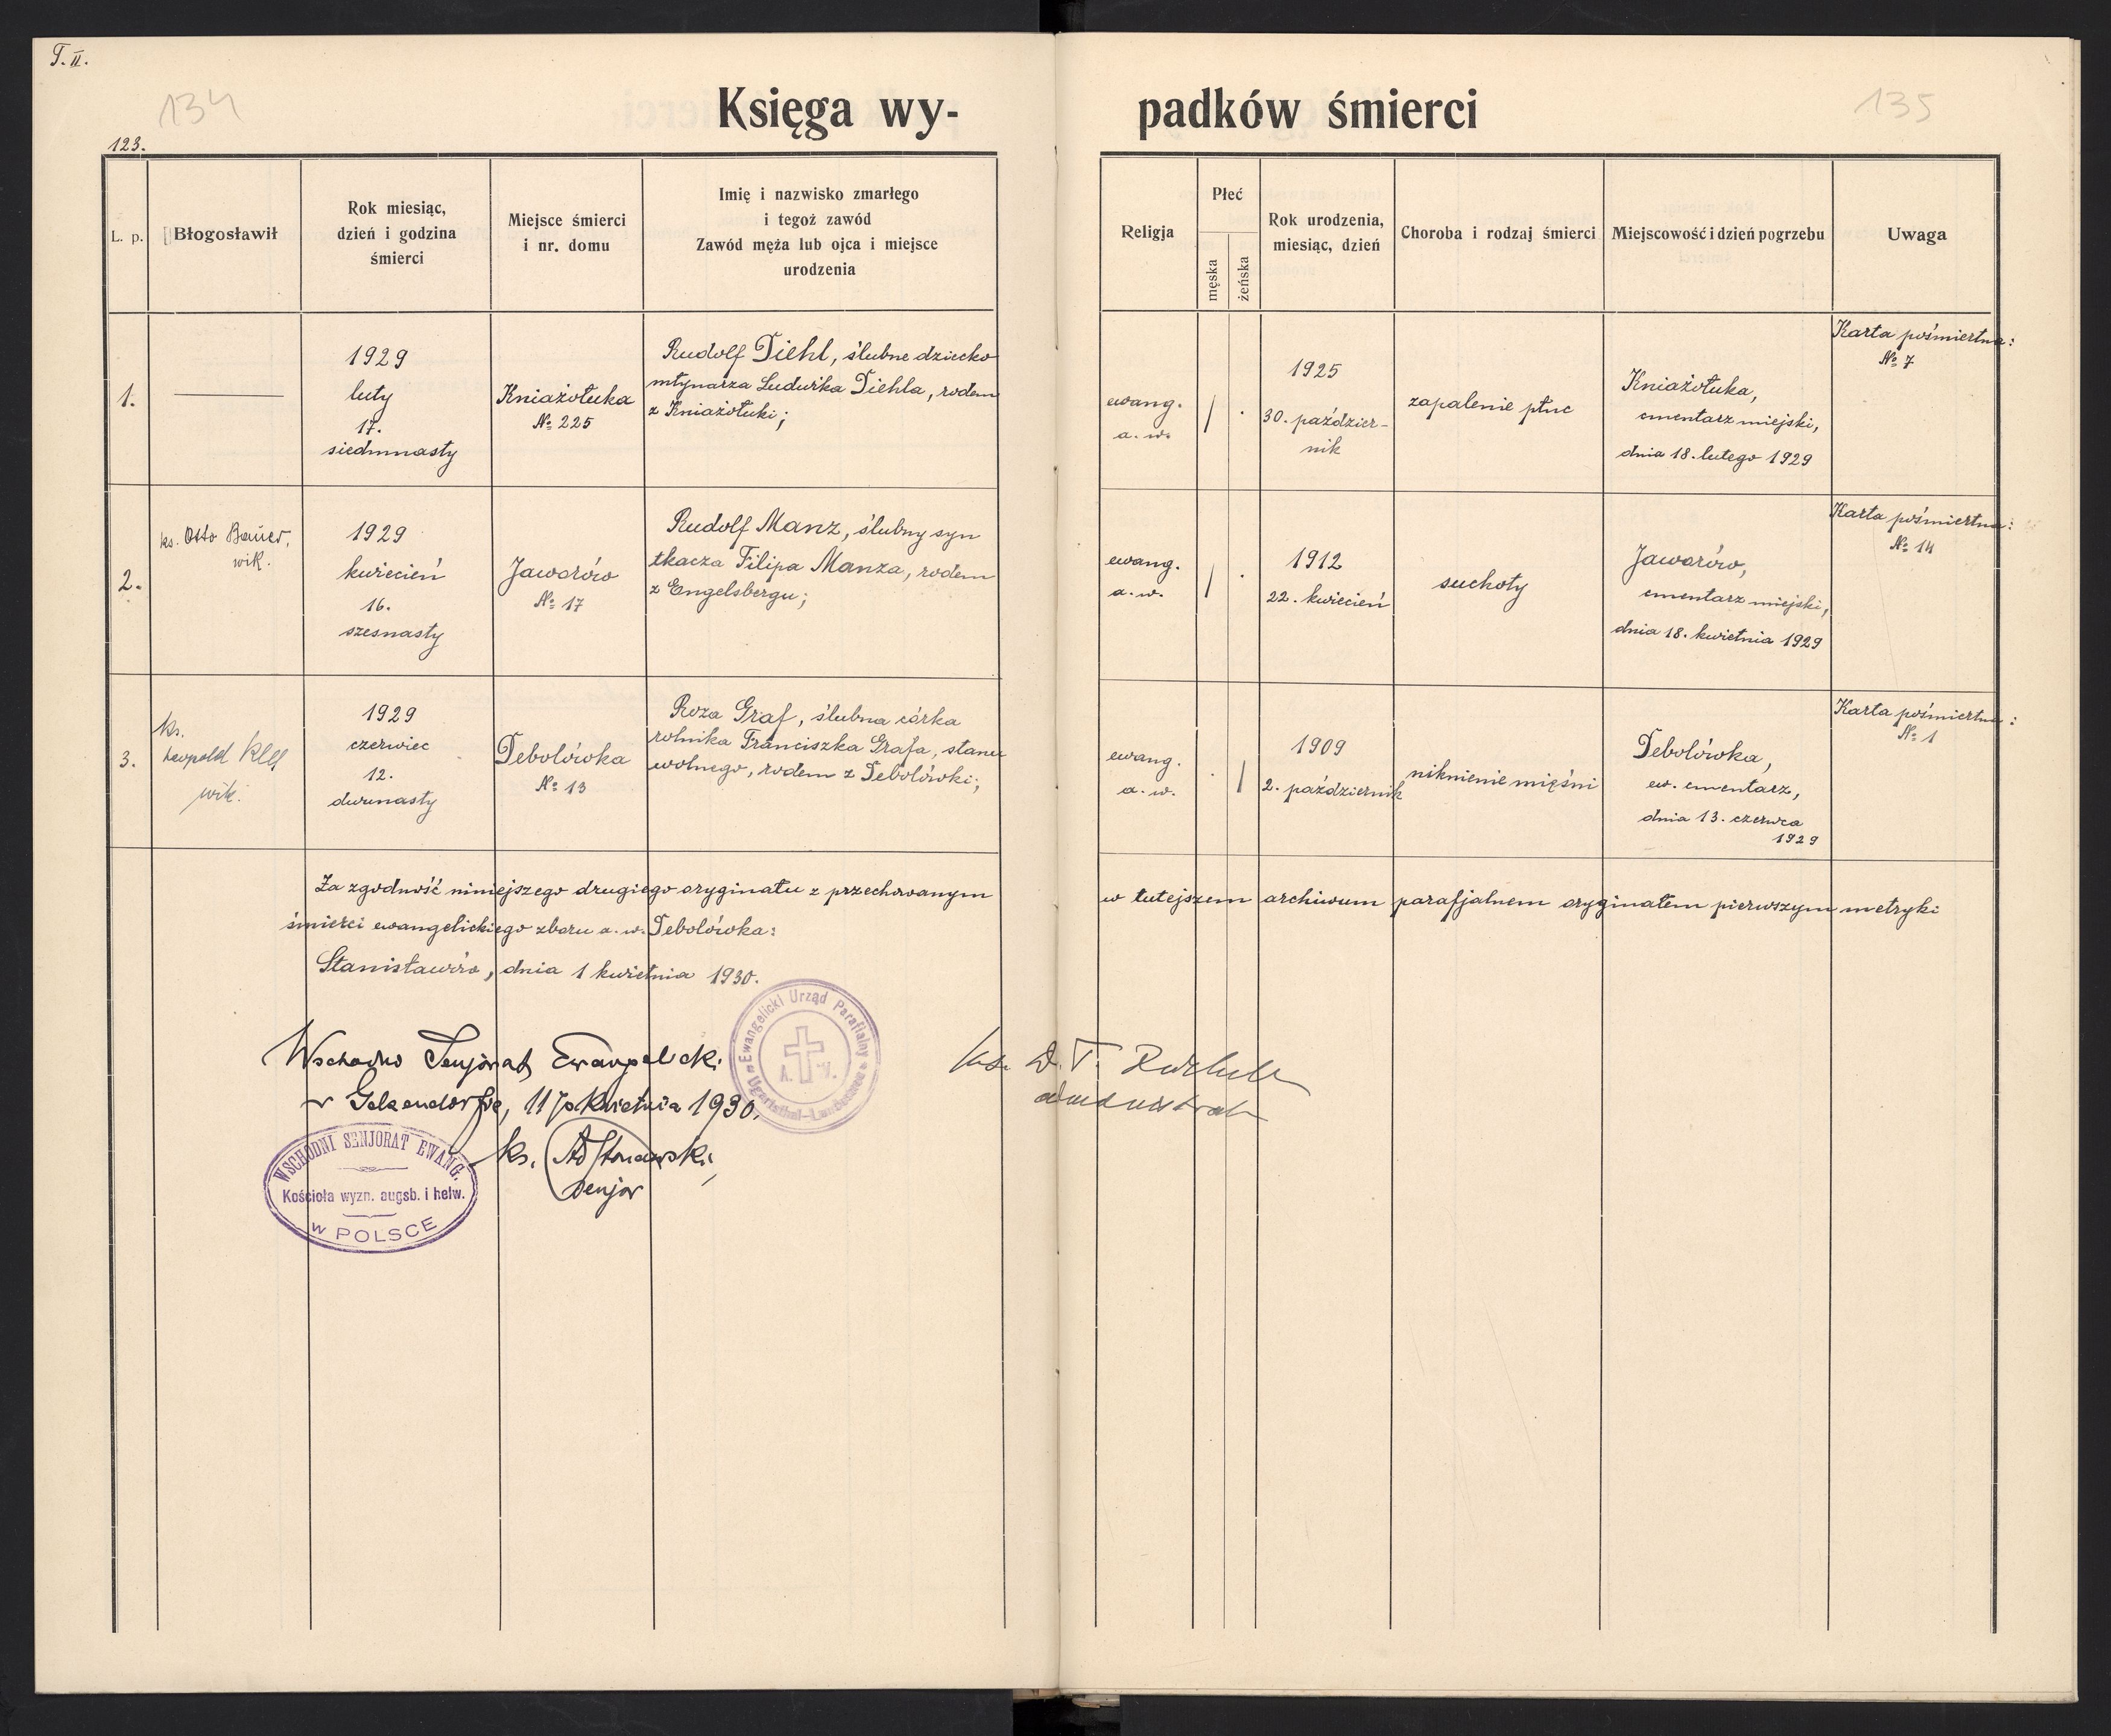 T. II.
134
135
123.
Księga wy-
padków śmierci
L. p.
Błogosławił
Rok miesiąc,
dzień i godzina
śmierci
Miejsce śmierci
i nr. domu
Imię i nazwisko zmarłego
i tegoż zawód
Zawód męża lub ojca i miejsce
urodzenia
Religja
Płeć
męska
żeńska
Rok urodzenia,
miesiąc, dzień
Choroba i rodzaj śmierci
Miejscowość i dzień pogrzebu
Uwaga
1.
1929
luty
17.
siedmnasty
Kniażołuka
№ 225
Rudolf Diehl, ślubne dziecko
młynarza Ludwika Diehla, rodem
z Kniażołuki;
ewang.
a. w.
1925
30. paździer-
nik
zapalenie płuc
Kniażołuka,
cmentarz miejski,
dnia 18. lutego 1929
Karta pośmiertna:
№ 7
2.
ks. Otto Bauer,
wik.
1929
kwiecień
16.
szesnasty
Jaworów
№ 17
Rudolf Manz, ślubny syn
tkacza Filipa Manza, rodem
z Engelsbergu;
ewang.
a. w.
1912
22. kwiecień
suchoty
Jaworów,
cmentarz miejski,
dnia 18. kwietnia 1929
Karta pośmiertna:
№ 14
3.
ks.
Leopold Klee
wik.
1929
czerwiec
12.
dwunasty
Debolówka
№ 13
Roza Graf, ślubna córka
rolnika Franciszka Grafa, stanu
wolnego, rodem z Debolówki;
ewang.
a. w.
1909
2. październik
niknienie mięśni
Debolówka,
ew. cmentarz,
dnia 13. czerwca
1929
Karta pośmiertna:
№ 1
Za zgodność niniejszego drugiego oryginału z przechowanym w tutejszem archiwum parafjalnem oryginałem pierwszym metryki
śmierci ewangelickiego zboru a. w. Debolówka:
Stanisławów, dnia 1 kwietnia 1930.
Ewangelicki Urząd Parafialny
Ugartsthal-Landestreu
A. W.
Wschodni Senjorat Ewangelicki
w Gelsendorfie, 11 go Kwietnia 1930.
ks. D. T.
administrator
WSCHODNI SENJORAT EWANG.
Kościoła wyzn. augsb. i helw.
w POLSCE
ks.
Senjor